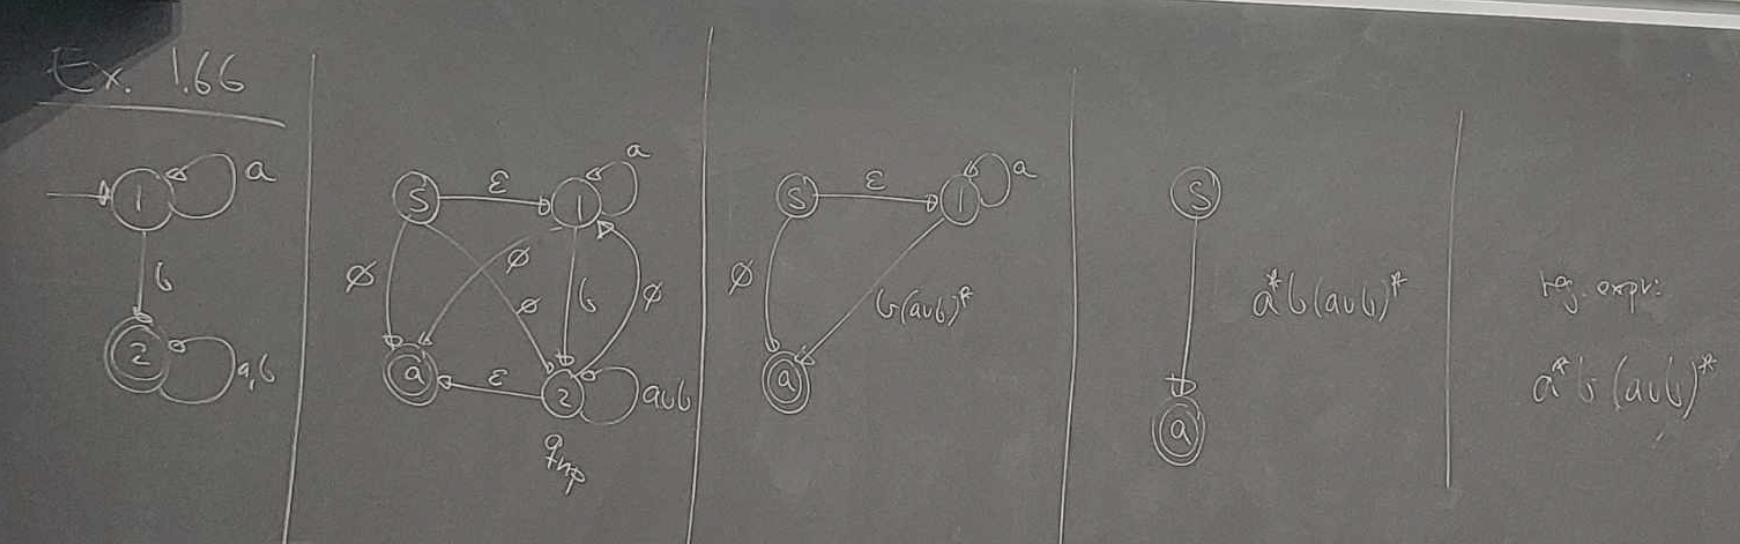 Ex. 1.66
1
a
b
2
a,b
S
ε
1
a
∅
∅
∅
b
∅
a
ε
2
a∪b
q_rip
S
ε
1
a
∅
b(a∪b)*
a
S
a*b(a∪b)*
a
reg. expr:
a*b(a∪b)*